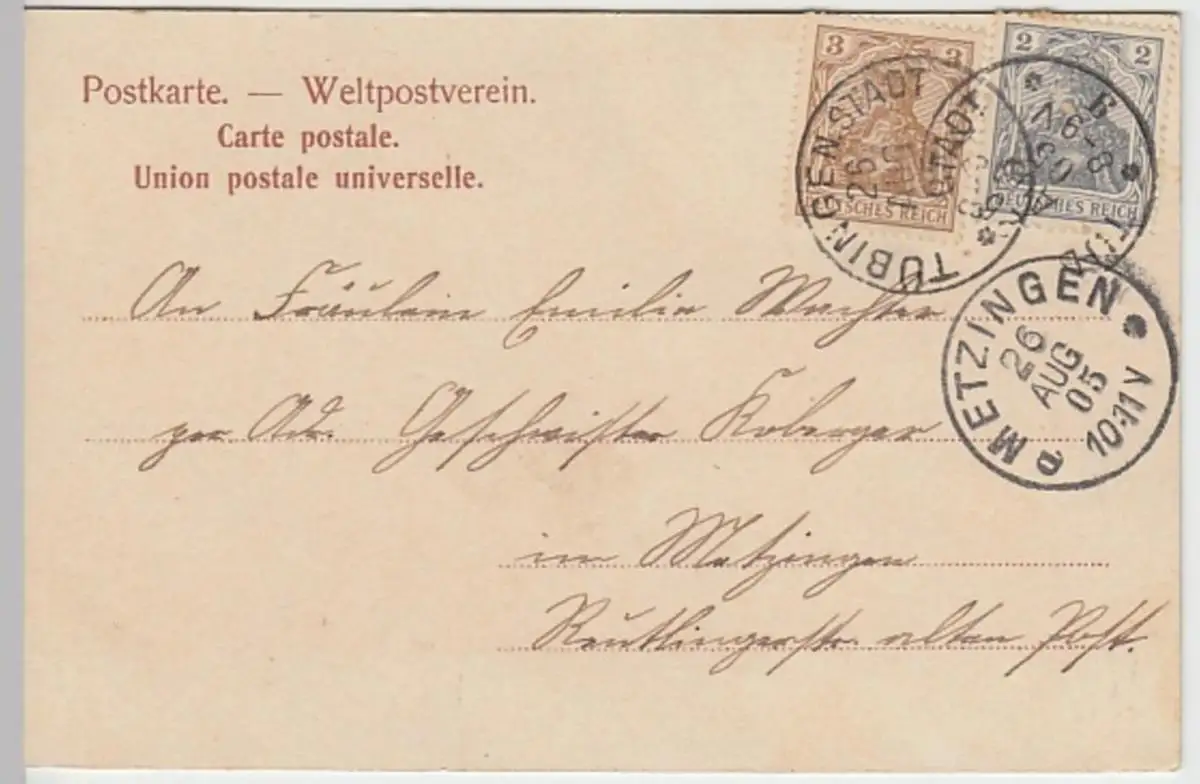 Postkarte. — Weltpostverein.
Carte postale.
Union postale universelle.
3 3
DEUTSCHES REICH
2 2
DEUTSCHES REICH
TÜBINGEN STADT
26 AUG
8-9V
METZINGEN
26
AUG
05
10-11V
An Fräulein Emilie Wachter
per Ad. Geschwister Koberger
in Metzingen
Reutlingerstr. alten Post.